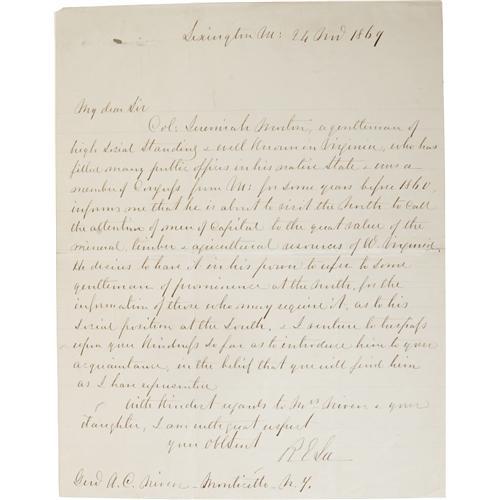 Lexington Va: 24 Nov 1869
My dear Sir
Col: Jeremiah Morton, a gentleman of
high social standing & well known in Virginia, who has
filled many public offices in his native State & was a
member of Congress from Va: for some years before 1860,
informs me that he is about to visit the North to call
the attention of men of Capital to the great value of the
mineral, timber & agricultural resources of W. Virginia.
He desires to have it in his power to refer to some
gentleman of prominence at the North, for the
information of those who may require it, as to his
social position at the South, & I venture to trespass
upon your kindness so far as to introduce him to your
acquaintance, in the belief that you will find him
as I have represented
With kindest regards to Mrs Niven & your
daughter, I am with great respect
your Obt Servt
R E Lee
Genl A. C. Niven - Monticello - N. Y.